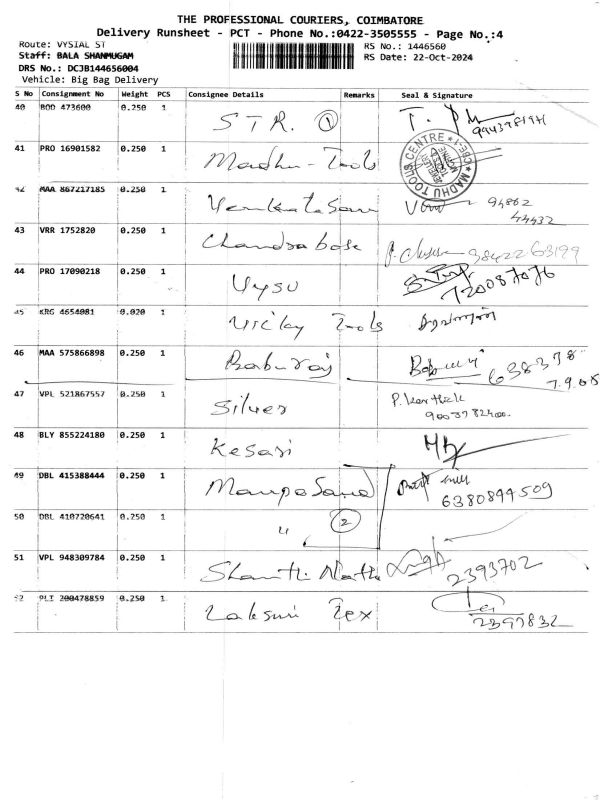 THE PROFESSIONAL COURIERS, COIMBATORE
Delivery Runsheet - PCT - Phone No.:0422-3505555 - Page No.:4
Route: VYSIAL ST RS No.: 1446560
Staff: BALA SHANMUGAM RS Date: 22-Oct-2024
DRS No.: DCJB144656004
Vehicle: Big Bag Delivery
S No Consignment No Weight PCS Consignee Details Remarks Seal & Signature
40 BOD 473600 0.250 1 STR. 1
41 PRO 16901582 0.250 1 Madhu - Tools MADHU TOOLS CENTRE CBE-1
42 MAA 867217185 0.250 1 Venkatesan 94862
44432
43 VRR 1752820 0.250 1 Chandrabose 9842263199
44 PRO 17090218 0.250 1 Vysu 720087076
45 KRG 4654081 0.020 1 Vicky Tools
46 MAA 575866898 0.250 1 Baburaj 638378
47 VPL 521867557 0.250 1 Silver P. Karthik
48 BLY 855224180 0.250 1 Kesari
49 DBL 415388444 0.250 1 6380844509
50 DBL 410720641 0.250 1 " 2
51 VPL 948309784 0.250 1 Shanthi Nath 2393702
52 PLI 200478859 0.250 1 Laksmi Tex 2397832